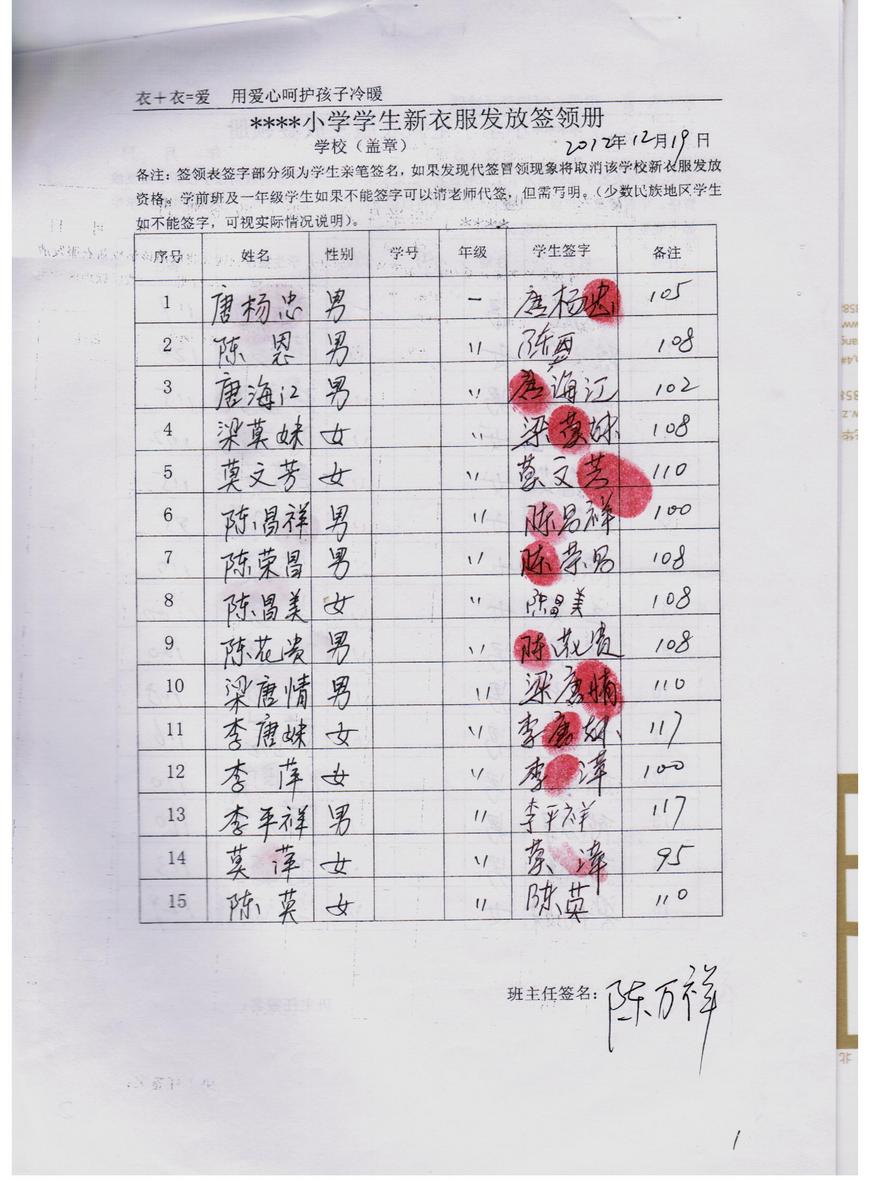 衣+衣=爱 用爱心呵护孩子冷暖
****小学学生新衣服发放签领册
学校（盖章） 2012年12月19日
备注：签领表签字部分须为学生亲笔签名，如果发现代签冒领现象将取消该学校新衣服发放
资格。学前班及一年级学生如果不能签字可以请老师代签，但需写明。（少数民族地区学生
如不能签字，可视实际情况说明）。
序号 姓名 性别 学号 年级 学生签字 备注
1 唐杨忠 男 一 唐杨忠 105
2 陈恩 男 〃 陈恩 108
3 唐海江 男 〃 唐海江 102
4 梁莫妹 女 〃 梁莫妹 108
5 莫文芳 女 〃 莫文芳 110
6 陈昌祥 男 〃 陈昌祥 100
7 陈荣昌 男 〃 陈荣昌 108
8 陈昌美 女 〃 陈昌美 108
9 陈花贵 男 〃 陈花贵 108
10 梁唐情 男 〃 梁唐情 110
11 李唐妹 女 〃 李唐妹 117
12 李萍 女 〃 李萍 100
13 李平祥 男 〃 李平祥 117
14 莫萍 女 〃 莫萍 95
15 陈英 女 〃 陈英 110
班主任签名：陈万祥
1